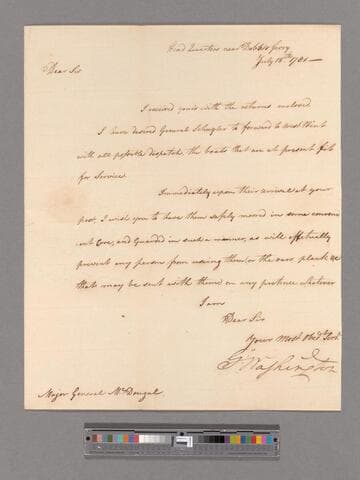 Head Quarters near Dobbs's Ferry
July 18th 1781—
Dear Sir
I received yours with the returns enclosed
I have desired General Schuyler to forward to West Point
with all possible dispatch, the boats that are at present fit
for Service
Immediately upon their arrival at your
post, I wish you to have them safely moored in some conveni
ent Cove, and Guarded in such a manner, as will effectually
prevent any person from using them, or the oars plank &c
that may be sent with them on any pretence whatever
I am
Dear Sir
Your Most Obedt Servt
Go Washington
Major General McDougal